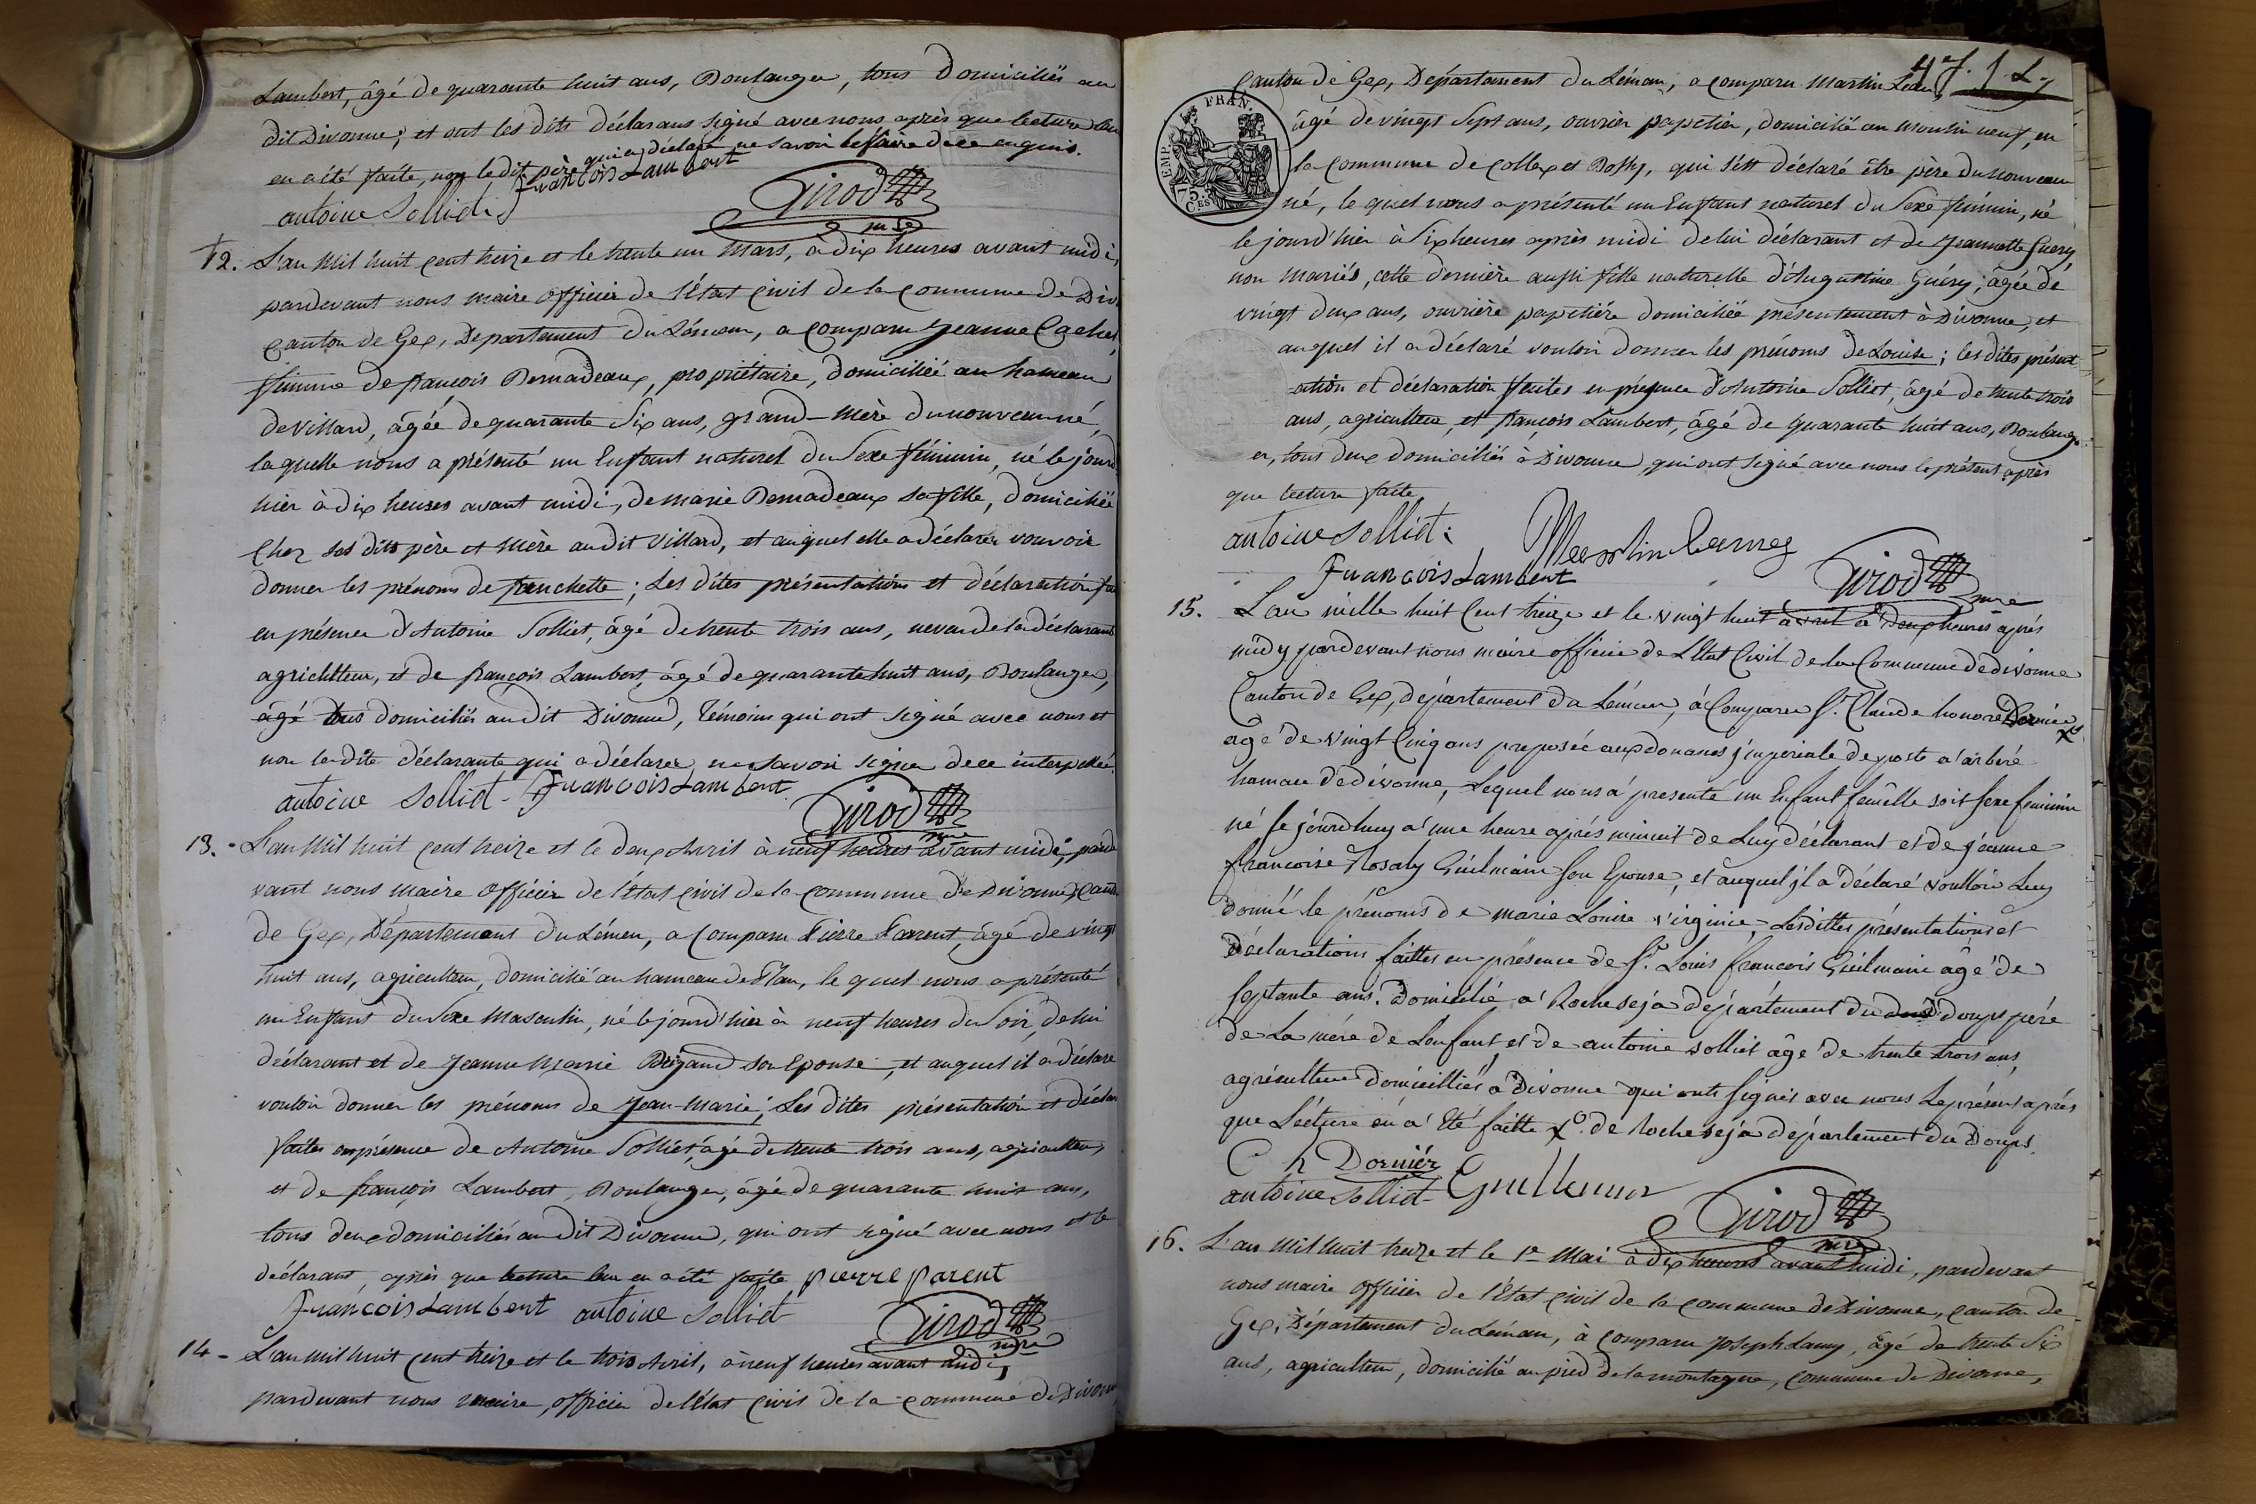 Lambert, âgé de quarante huit ans, Boulanger, tous domiciliés au
dit Divonne; et ont les dits déclarans signé avec nous après que lecture leur
en a été faite, non le dit père qui a déclaré ne savoir le faire de ce enquis.
antoine Solliet François Lambert
Girod mre
12. L'an Mil huit cent treize et le trente un Mars, à dix heures avant midi,
pardevant nous maire officier de l'état civil de la commune de Div
canton de Gex, Département du Léman, a comparu Jeanne
femme de françois Bernadeaux, propriétaire, domiciliée au hameau
de villard, âgée de quarante Six ans, grand-mère du nouveau né,
laquelle nous a présenté un Enfant naturel du Sexe féminin, né le jourd
hier à dix heures avant midi, de marie Bernadeaux sa fille, domiciliée
chez ses dits père et mère audit villard, et auquel elle a déclarée vouvoir
donner les prénoms de franchette; Les dites présentation et déclaration
en présence d'Antoine Solliet, âgé de trente trois ans, neveu de la déclarant
agriculteur, et de françois Lambert, âgé de quarante huit ans, Boulanger,
âgé tous domiciliés audit Divonne, témoins qui ont signé avec nous et
non la dite déclarante qui a déclarée ne savoir signer de ce interpellée.
antoine Solliet - François Lambert
Girod mre
13. - L'an Mil huit cent treize et le deux Avril à neuf heures avant midi, parde
vant nous maire officier de l'état civil de la commune de Divonne, cant
de Gex, Département du Léman, a comparu Pierre Parent, âgé de vingt
huit ans, agriculteur, domicilié au hameau de Plan, le quel nous a présenté
un Enfant du Sexe Masculin, né le jourd'hier à neuf heures du Soir, de lui
déclarant et de Jeanne Marie Brigand son Epouse, et auquel il a déclaré
vouloir donner les prénoms de Jean-Marie; Les dites présentation et déclar
faites en présence de Antoine Solliet, âgé de trente trois ans, agriculteur,
et de françois Lambert, Boulanger, âgé de quarante huit ans,
tous deux domiciliés audit Divonne, qui ont signé avec nous et le
déclarant, après que lecture leur en a été faite pierre parent
François Lambert antoine Solliet
Girod mre
14 - L'an mil huit cent treize et le trois Avril, à neuf heures avant midi,
pardevant nous maire, officier de l'état civil de la commune de Divonn
47. f. L.
canton de Gex, Département du Léman, a comparu Martin
EMP. FRAN. 75 CES
âgé de vingt Sept ans, ouvrier papetier, domicilié au moulin neuf, en
la commune de Collex et Bossy, qui s'est déclaré être père du nouveau
né, le quel nous a présenté un Enfant naturel du Sexe féminin, né
le jourd'hier à Six heures après midi de lui déclarant et de Jeannette Guéry
non mariés, cette dernière aussi fille naturelle d'Augustine Guéry; âgée de
vingt deux ans, ouvrière papetière domiciliée présentement à Divonne, et
auquel il a déclaré vouloir donner les prénoms de Louise; les dites présent
ation et déclaration faites en présence d'Antoine Solliet, âgé de trente trois
ans, agriculteur, et françois Lambert, âgé de quarante huit ans, Boulang
er, tous deux domiciliés à Divonne, qui ont signé avec nous le présent après
que lecture faite
antoine Solliet
François Lambert
Girod mre
15. L'an mille huit Cent treize et le vingt huit avril à deux heures après
midy pardevant nous maire officier de L'Etat Civil de la Commune de divonne
Canton de Gex, département du Léman, à Comparu Sr. Claude honoré Dornier x°
âgé de vingt Cinq ans preposée aux douanes j'mperiale de poste a arbére
hameau de divonne, Lequel nous a presenté un Enfant femelle soit sexe feminin
né ce jourdhuy a une heure après minuit de Luy déclarant et de jeanne
francoise Rosaly Guilmain son Epouse, et auquel j'l a déclaré voulloir Luy
donné le prénoms de marie Louise virginie, Les dittes présentations et
déclarations faittes en présence de Sr. Louis francois Guilmain âgé de
septante ans. domicilié a Rochejeja département du doups père
de La mére de Lenfant et de antoine solliet âgé de trente trois ans,
agriculteur domicilliés a Divonne qui onts signés avec nous Le présent après
que Lécture en a été faitte x° de Rochejeja département du Doups.
C h Dornier
antoine Solliet
Girod mre
16. L'an Mil huit treize et le 1er Mai à dix heures avant midi, pardevant
nous maire officier de l'état civil de la commune de Divonne, canton de
Gex, Département du Léman, à comparu Joseph Lamy, âgé de trente Six
ans, agriculteur, domicilié au pied de la montagne, commune de Divonne,